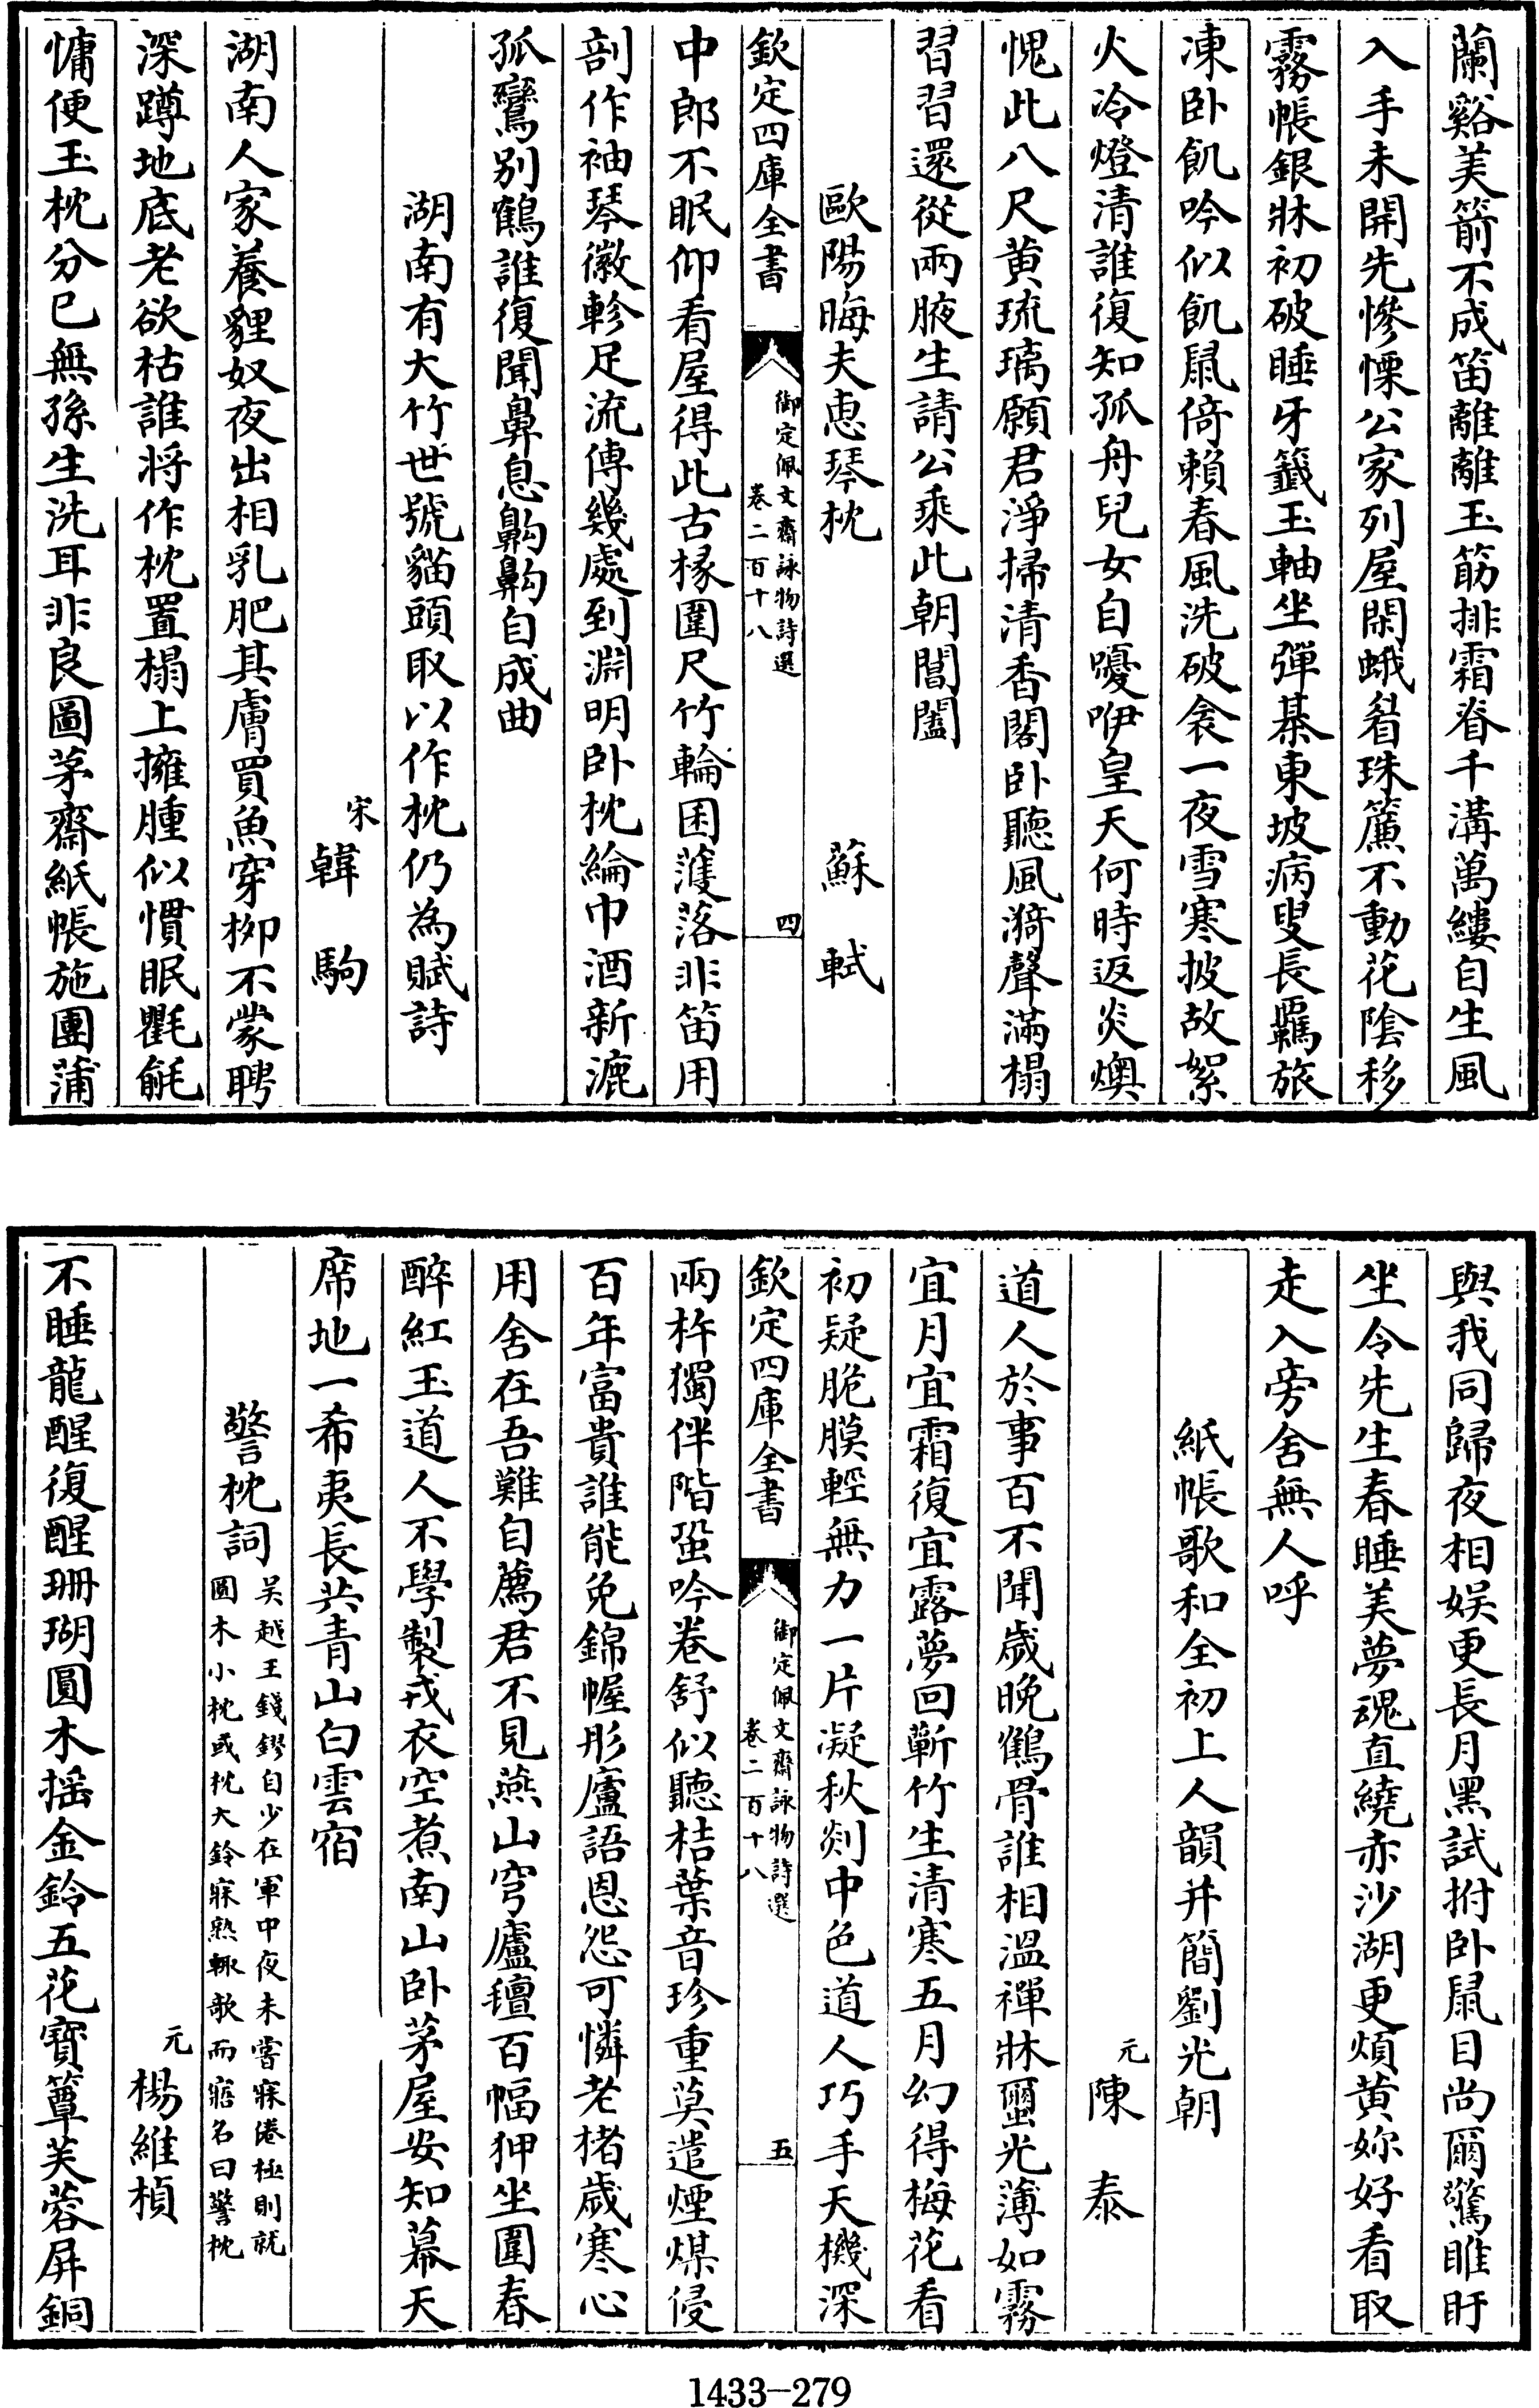 蘭谿美箭不成笛離離玉筯排霜脊千溝萬縷自生風
入手未開先慘慄公家列屋閑蛾眉珠簾不動花陰移
霧帳銀牀初破睡牙籖玉軸坐彈棊東坡病叟長羈旅
凍卧飢吟似飢鼠倚賴春風洗破衾一夜雪寒披故絮
火冷燈清誰復知孤舟兒女自嚘咿皇天何時返炎燠
愧此八尺黃琉璃願君淨掃清香閣卧聽風漪聲滿榻
習習還從兩腋生請公乘此朝閶闔
歐陽晦夫惠琴枕 蘇軾
欽定四庫全書 御定佩文齋詠物詩選 卷二百十八 四
中郎不眠仰看屋得此古椽圍尺竹輪囷濩落非笛用
剖作袖琴徽軫足流傳幾處到淵明卧枕綸巾酒新漉
孤鸞別鶴誰復聞鼻息齁齁自成曲
湖南有大竹世號貓頭取以作枕仍為賦詩
宋 韓駒
湖南人家養貍奴夜出相乳肥其膚買魚穿柳不蒙聘
深蹲地底老欲枯誰將作枕置榻上擁腫似慣眠氍毹
慵便玉枕分已無孫生洗耳非良圖茅齋紙帳施團蒲
與我同歸夜相娛更長月黑試拊卧鼠目尚爾驚睢盱
坐令先生春睡美夢魂直繞赤沙湖更煩黃妳好看取
走入旁舍無人呼
紙帳歌和全初上人韻并簡劉光朝
元 陳泰
道人於事百不聞歲晚鶴骨誰相溫禪牀蠒光薄如霧
宜月宜霜復宜露夢回蘄竹生清寒五月幻得梅花看
初疑脆膜輕無力一片凝秋剡中色道人巧手天機深
欽定四庫全書 御定佩文齋詠物詩選 卷二百十八 五
兩杵獨伴階蛩吟卷舒似聽桔葉音珍重莫遣煙煤侵
百年富貴誰能免錦幄彤廬語恩怨可憐老楮歲寒心
用舍在吾難自薦君不見燕山穹廬氊百幅狎坐圍春
醉紅玉道人不學製戎衣空煮南山卧茅屋安知幕天
席地一希夷長共青山白雲宿
警枕詞 吴越王錢鏐自少在軍中夜未嘗寐倦極則就圓木小枕或枕大鈴寐熟輙欹而寤名曰警枕
元 楊維楨
不睡龍醒復醒珊瑚圓木揺金鈴五花寶簟芙蓉屏銅
1433-279